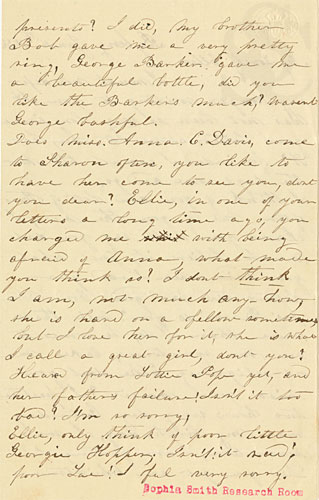 presents? I did, my brother
Bob gave me a very pretty
ring, George Barker, gave me
a beautiful bottle, did you
like the Barkers much, wasent
George bashful.
Does Miss. Anna. C. Davis, come
to Sharon often, you like to
have her come to see you, dont
you dear? Ellie, in one of your
letters a long time ago, you
charged me with being
afreid of Anna, what made
you think so? I dont think
I am, not much any-how,
she is hard on a fellow sometimes,
but I love her for it, she is what
I call a great girl, dont you?
Heard from Lottie Pope yet, and
her father's failure! Isn't it too
bad? I'm so sorry,
Ellie, only think of poor little
Georgie Hopper, Isn't it
poor I feel very sorry.
Sophia Smith Research Room